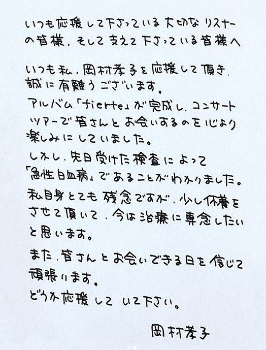 いつも応援して下さっている大切なリスナー
の皆様、そして支えて下さっている皆様へ
いつも私、岡村孝子を応援して頂き、
誠に有難うございます。
アルバム「fierte」が完成し、コンサート
ツアーで皆さんとお会いするのを心より
楽しみにしていました。
しかし、先日受けた検査によって
「急性白血病」であることがわかりました。
私自身とても残念ですが、少し休養を
させて頂いて、今は治療に専念したい
と思います。
また、皆さんとお会いできる日を信じて
頑張ります。
どうか応援して いて下さい。
岡村孝子